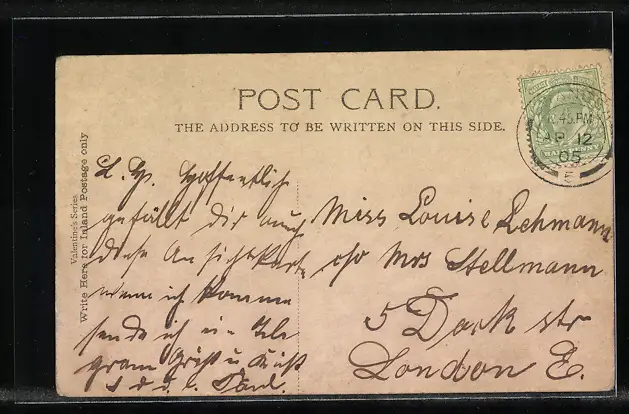 POST CARD.
THE ADDRESS TO BE WRITTEN ON THIS SIDE.
Valentine's Series
Write Here for Inland Postage only
.45 PM
AP 12
05
E
HALFPENNY
Hoffentlich
gefällt Dir auch
diese Ansichtskarte
wenn ich komme
sende ich ein Tele
gram Gruß u Kuß
Miss Louise Lehmann
c/o Mrs Stellmann
5 Dock str
London E.